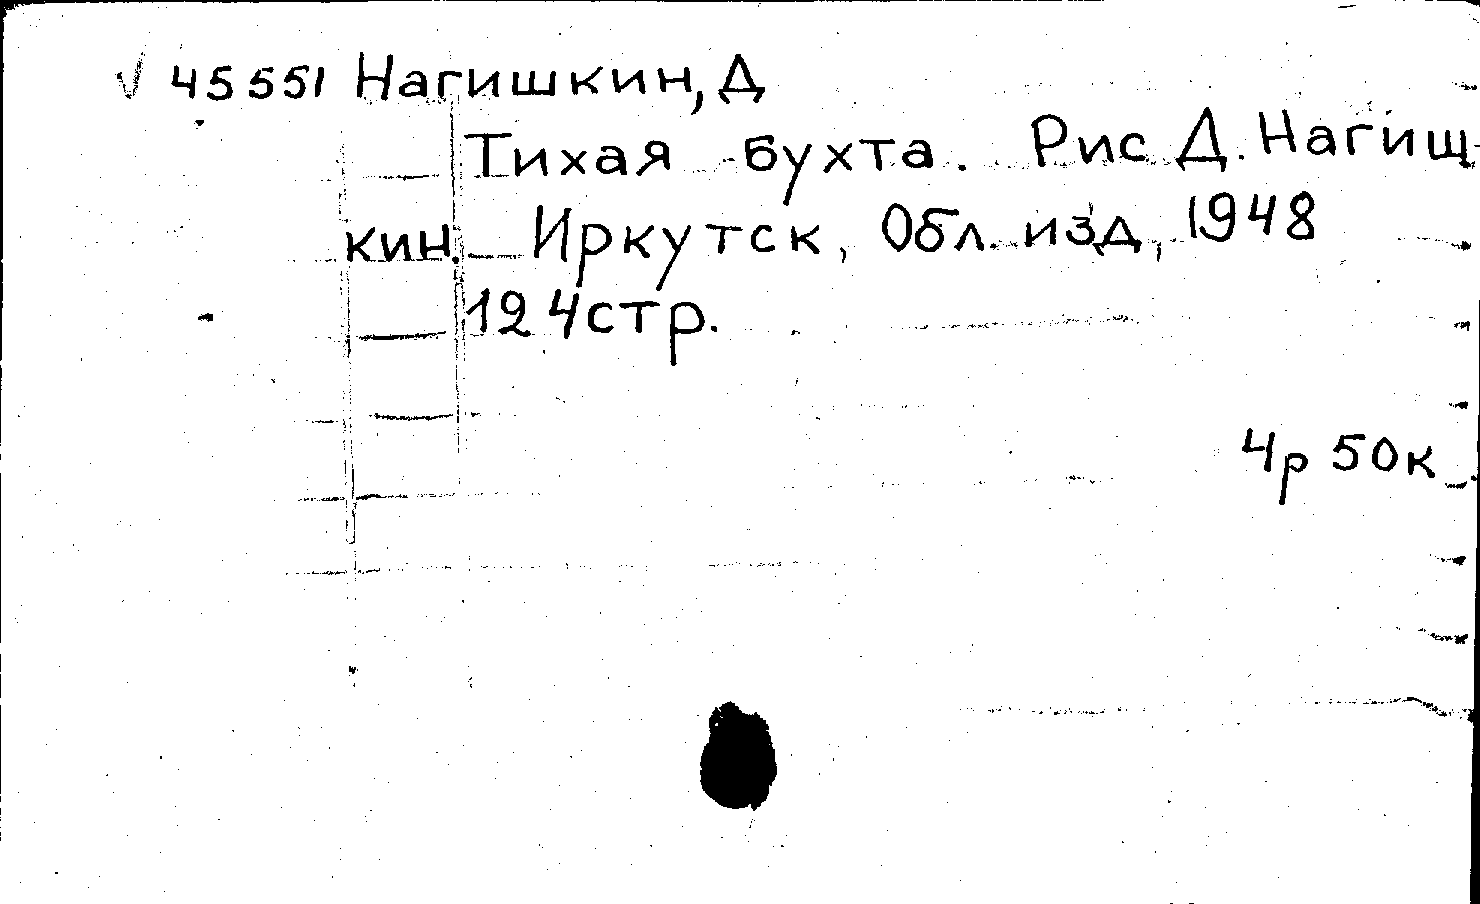 √ 45551 Нагишкин, Д
Тихая бухта. Рис Д. Нагиш-
кин. Иркутск, Обл. изд, 1948
124стр.
4р 50к